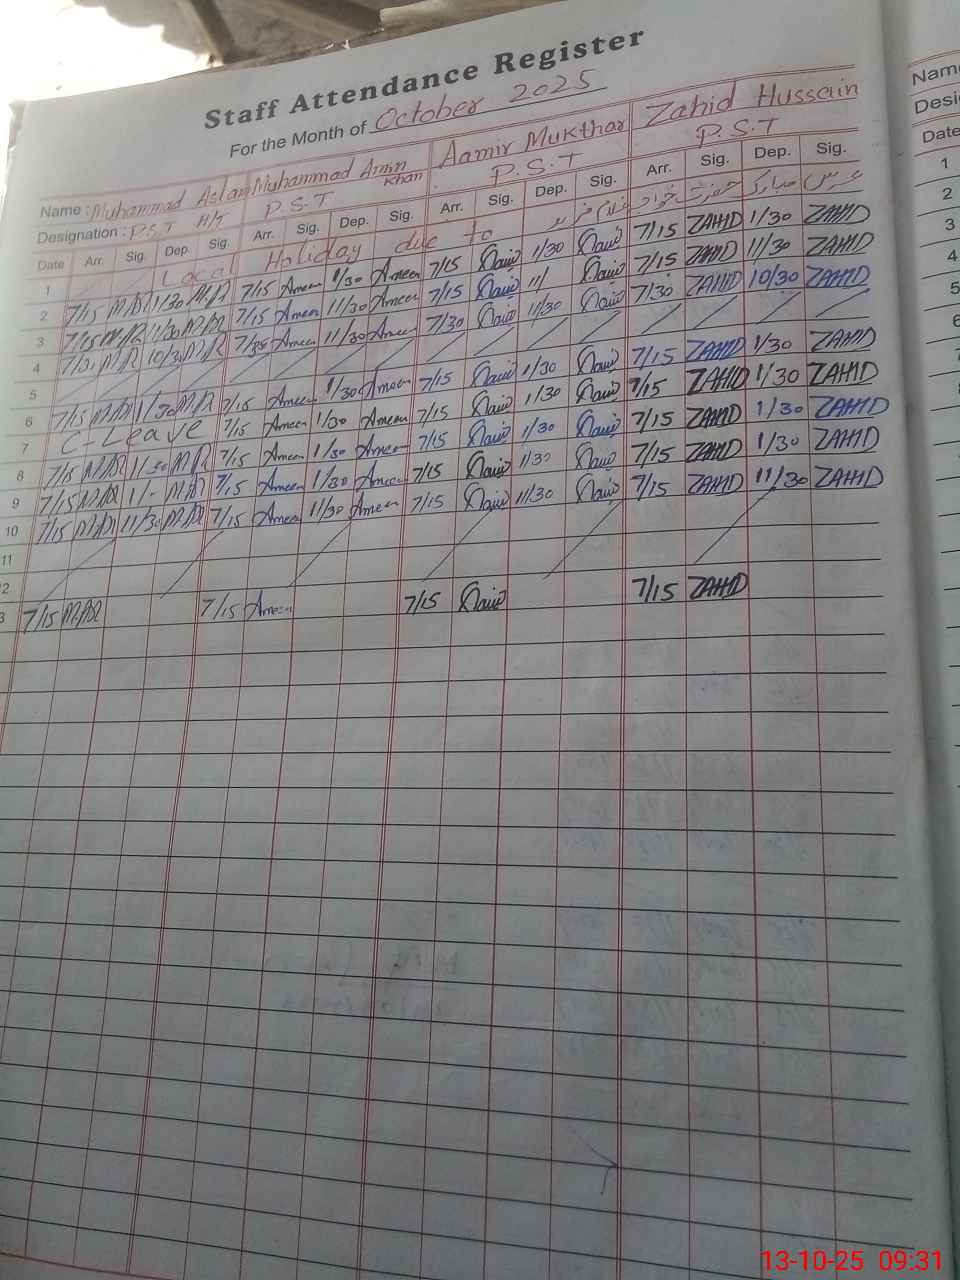 Staff Attendance Register
For the Month of October 2025
Name : Muhammad Aslam Muhammad Amin Khan Aamir Mukthar Zahid Hussain
Designation : P.S.T H/T P.S.T P.S.T P.S.T
Date Arr. Sig. Dep. Sig. Arr. Sig. Dep. Sig. Arr. Sig. Dep. Sig. Arr. Sig. Dep. Sig.
1 Local Holiday due to عرس مبارک حضرت خواجہ غلام فرید
2 7/15 M.A 1/30 M.A 7/15 Ameen 1/30 Ameen 7/15 1/30 7/15 ZAHID 1/30 ZAHID
3 7/15 M.A 11/30 M.A 7/15 Ameen 11/30 Ameen 7/15 11/ 7/15 ZAHID 11/30 ZAHID
4 7/3 M.A 10/30 M.A Ameen 11/30 Ameen 7/30 11/30 7/30 ZAHID 10/30 ZAHID
5
6 7/15 M.A 1/30 M.A 7/15 Ameen 1/30 Ameen 7/15 1/30 7/15 ZAHID 1/30 ZAHID
7 C-Leave 7/15 Ameen 1/30 Ameen 7/15 1/30 7/15 ZAHID 1/30 ZAHID
8 7/15 M.A 1/30 M.A 7/15 Ameen 1/30 Ameen 7/15 1/30 7/15 ZAHID 1/30 ZAHID
9 7/15 M.A 1/- M.A 7/15 Ameen 1/30 Ameen 7/15 1/30 7/15 ZAHID 1/30 ZAHID
10 7/15 M.A 11/30 M.A 7/15 Ameen 11/30 Ameen 7/15 11/30 7/15 ZAHID 11/30 ZAHID
11
2
3 7/15 M.A 7/15 Ameen 7/15 7/15 ZAHID
Name
Desi
Date
1
2
3
4
5
6
13-10-25 09:31